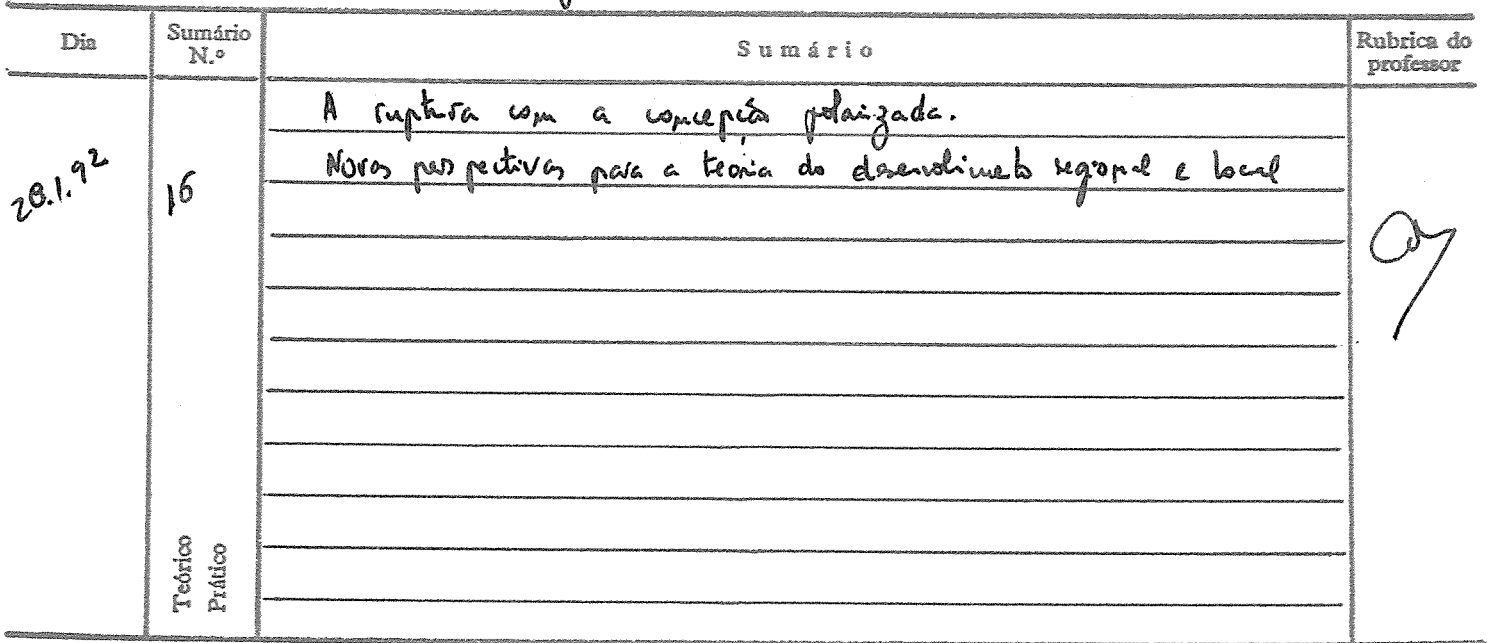 Dia
Sumário N.º
Sumário
Rubrica do professor
28.1.92
16
A ruptura com a concepção polarizada.
Novas perspectivas para a teoria do desenvolvimento regional e local
Teórico
Prático